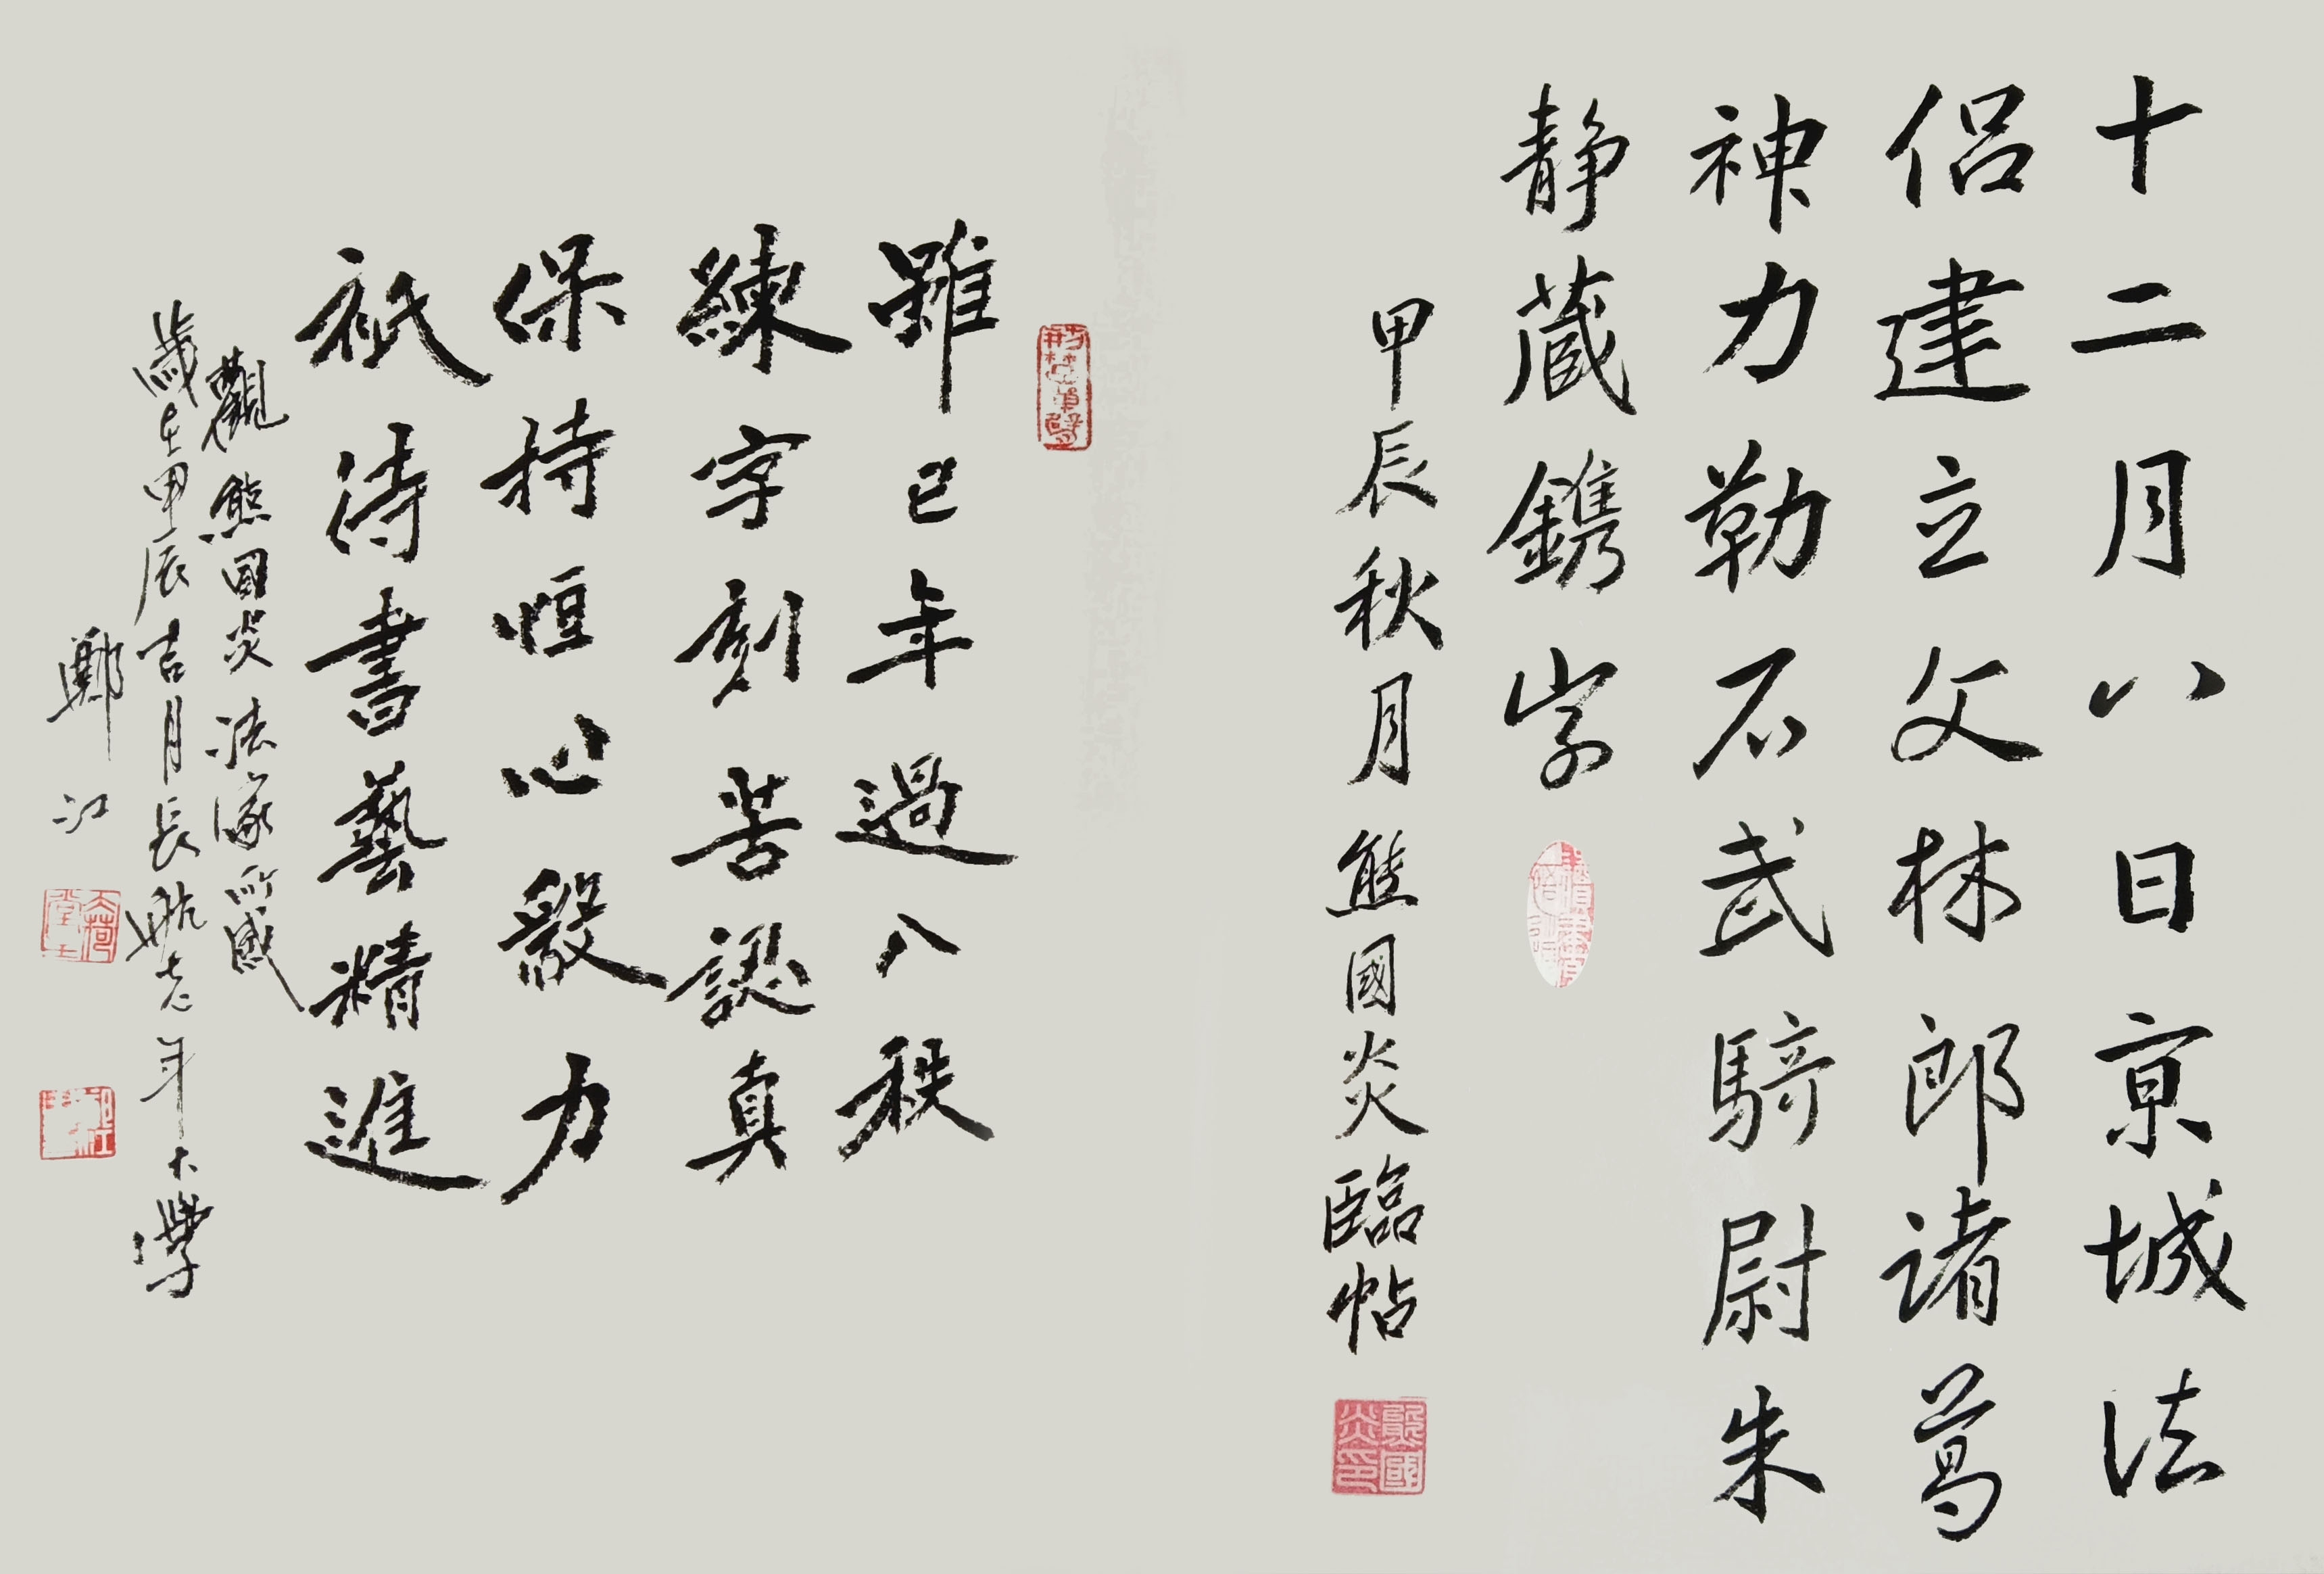 十二月八日京城法
侣建立文林郎诸葛
神力勒石武骑尉朱
静藏鐫字
甲辰秋月熊國炎臨帖
熊國炎印
雖已年過八秩
練字刻苦認真
保持恒心毅力
祇待書藝精進
觀熊國炎法家所感
歲在甲辰吉月長航老年大學
鄭江